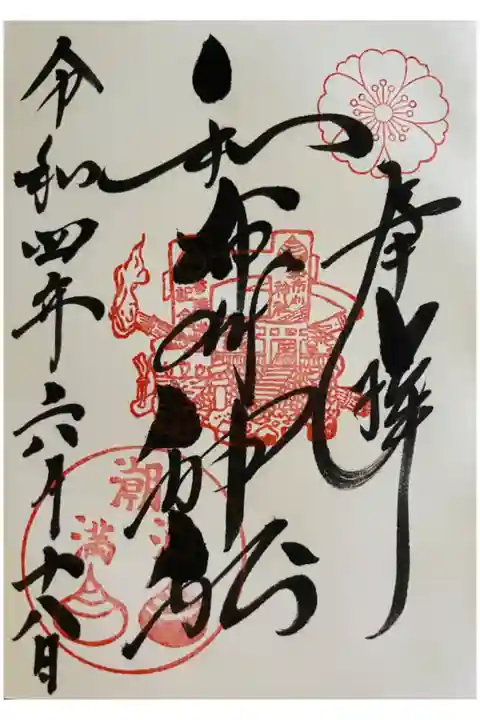 奉拝
和布刈神社
令和四年六月十八日
潮
満